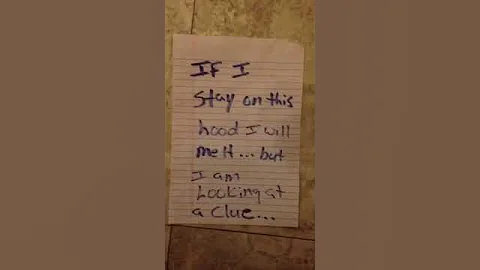 If I
Stay on this
hood I will
melt... but
I am
Looking at
a clue...